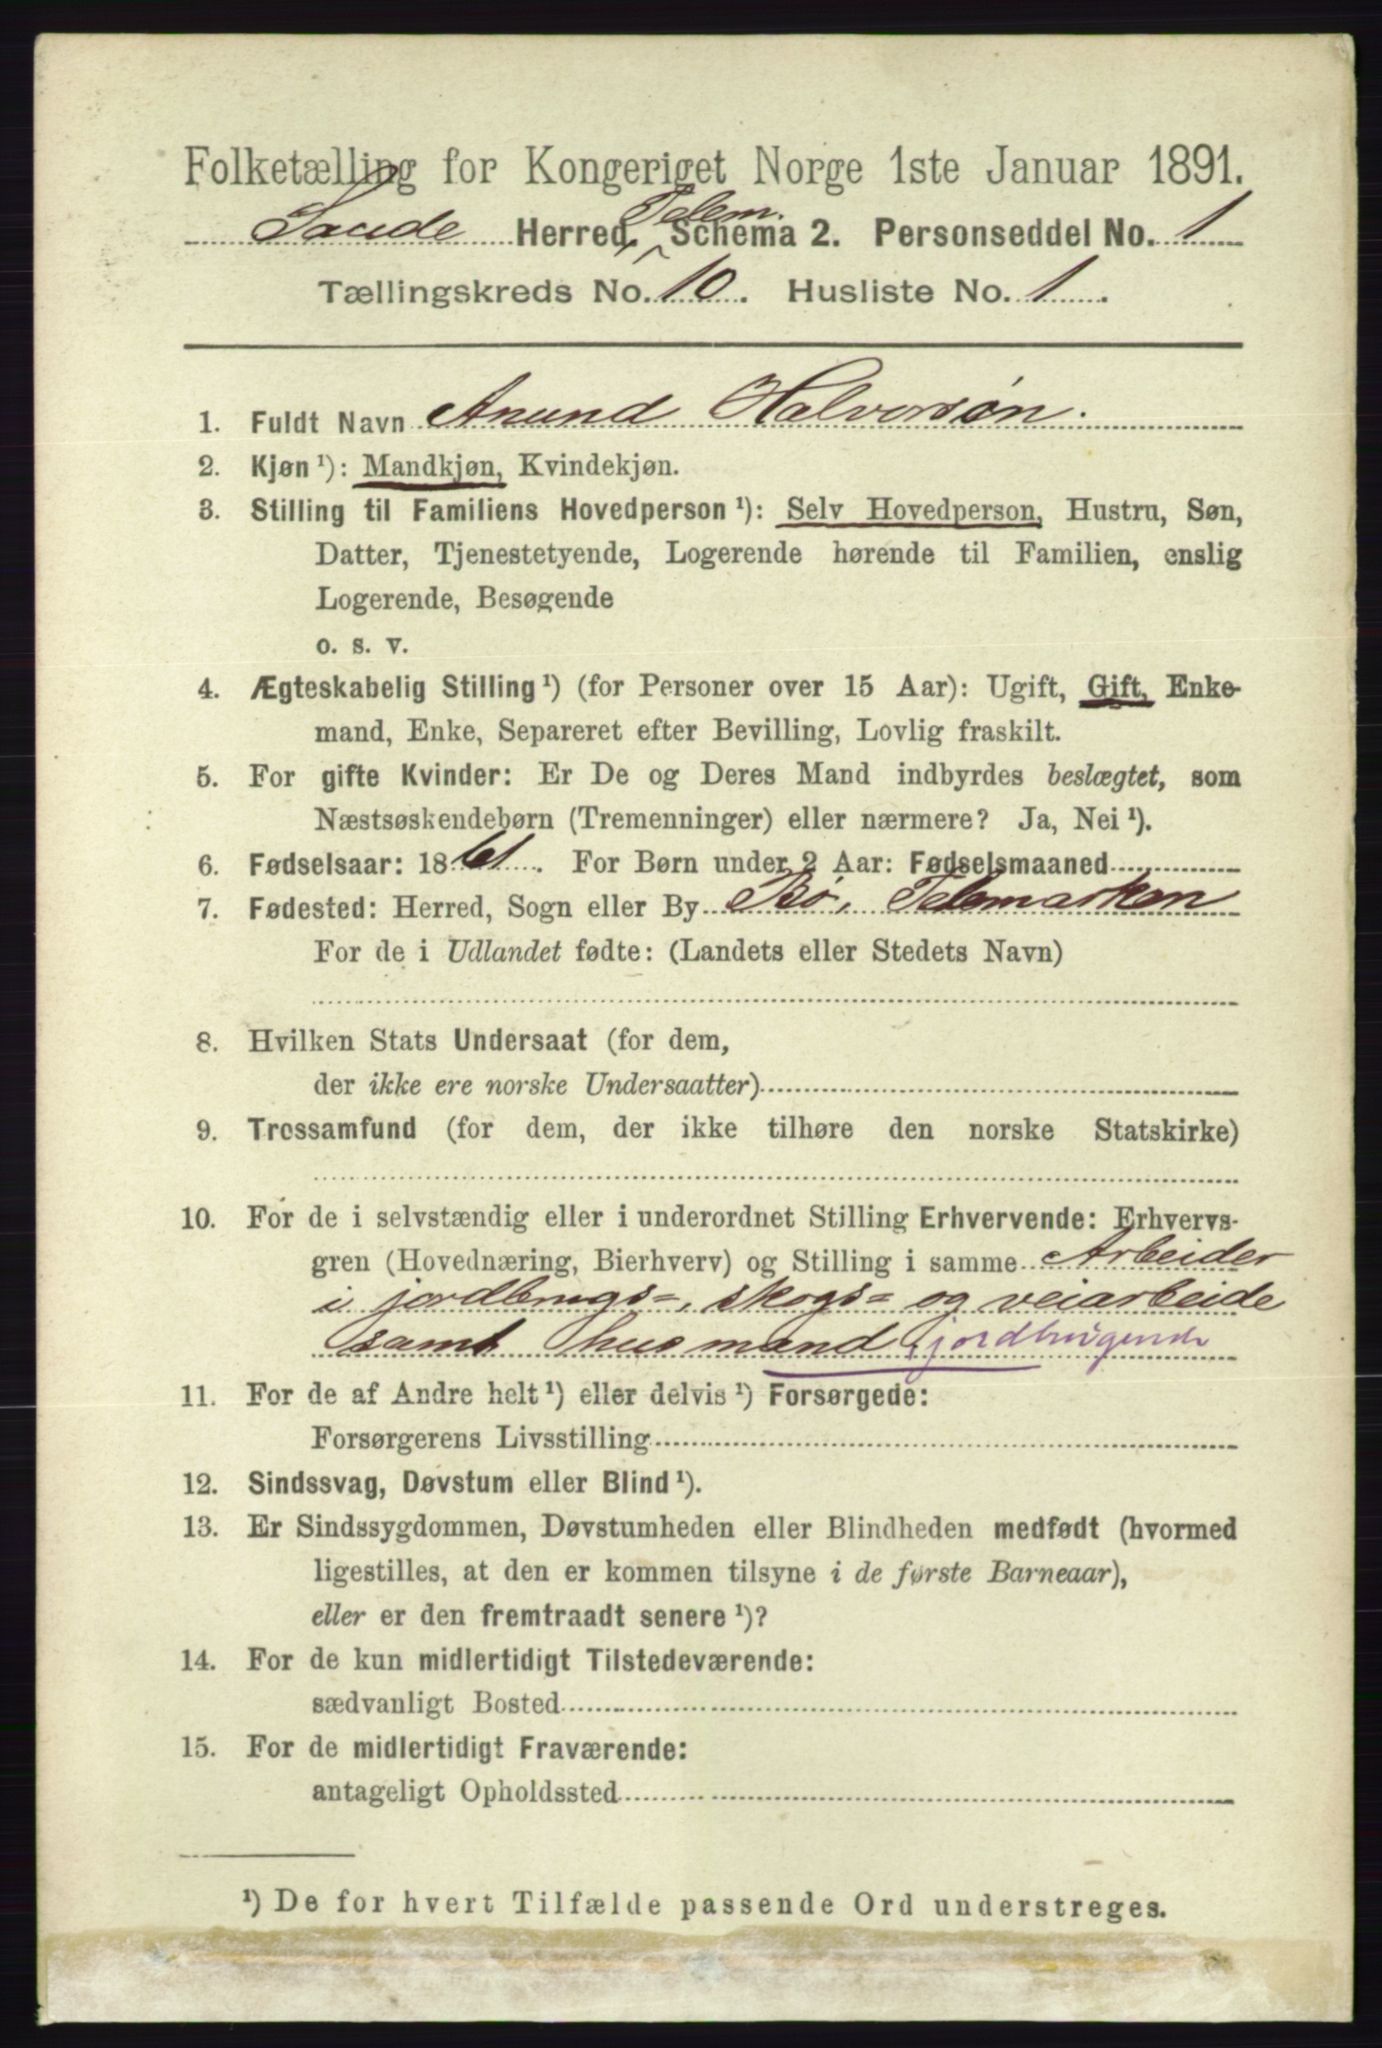 Folketælling for Kongeriget Norge 1ste Januar 1891.
Saude Herred, Telem. Schema 2. Personseddel No. 1
Tællingskreds No. 10. Husliste No. 1.
1. Fuldt Navn Anund Halvorsøn.
2. Kjøn ¹): Mandkjøn, Kvindekjøn.
3. Stilling til Familiens Hovedperson ¹): Selv Hovedperson, Hustru, Søn,
Datter, Tjenestetyende, Logerende hørende til Familien, enslig
Logerende, Besøgende
o. s. v.
4. Ægteskabelig Stilling ¹) (for Personer over 15 Aar): Ugift, Gift, Enke-
mand, Enke, Separeret efter Bevilling, Lovlig fraskilt.
5. For gifte Kvinder: Er De og Deres Mand indbyrdes beslægtet, som
Næstsøskendebørn (Tremenninger) eller nærmere? Ja, Nei ¹).
6. Fødselsaar: 1861. For Børn under 2 Aar: Fødselsmaaned
7. Fødested: Herred, Sogn eller By Bø, Telemarken
For de i Udlandet fødte: (Landets eller Stedets Navn)
8. Hvilken Stats Undersaat (for dem,
der ikke ere norske Undersaatter)
9. Trossamfund (for dem, der ikke tilhøre den norske Statskirke)
10. For de i selvstændig eller i underordnet Stilling Erhvervende: Erhvervs-
gren (Hovednæring, Bierhverv) og Stilling i samme Arbeider
i jordbrugs=, skogs= og veiarbeide
samt husmand, jordbrugende
11. For de af Andre helt ¹) eller delvis ¹) Forsørgede:
Forsørgerens Livsstilling
12. Sindssvag, Døvstum eller Blind ¹).
13. Er Sindssygdommen, Døvstumheden eller Blindheden medfødt (hvormed
ligestilles, at den er kommen tilsyne i de første Barneaar),
eller er den fremtraadt senere ¹)?
14. For de kun midlertidigt Tilstedeværende:
sædvanligt Bosted
15. For de midlertidigt Fraværende:
antageligt Opholdssted
¹) De for hvert Tilfælde passende Ord understreges.